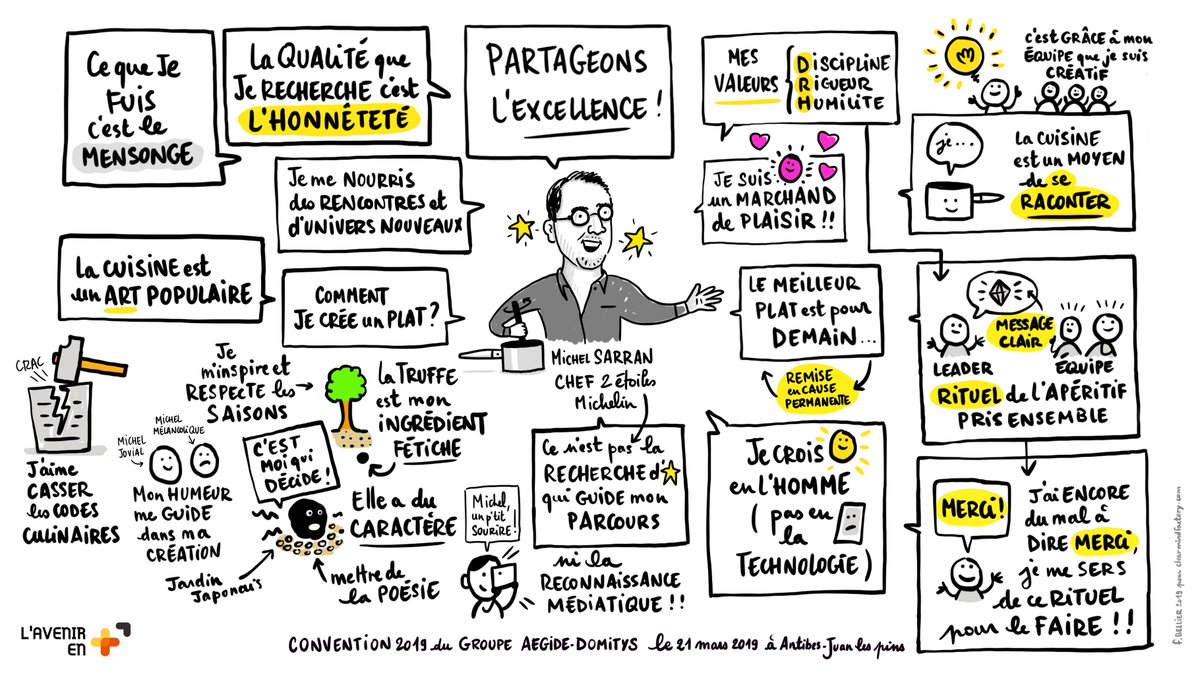 Ce que Je
FUIS
c'est le
MENSONGE
La QUALITÉ que
Je RECHERCHE c'est
L'HONNÊTETÉ
PARTAGEONS
L'EXCELLENCE !
MES
VALEURS
DISCIPLINE
RIGUEUR
HUMILITE
c'est GRÂCE à mon
ÉQUIPE que je suis
CRÉATIF
je...
La CUISINE
est un MOYEN
de se
RACONTER
Je me NOURRIS
des RENCONTRES et
d'UNIVERS NOUVEAUX
JE SUIS
un MARCHAND
de PLAISIR !!
La CUISINE est
un ART POPULAIRE
COMMENT
JE CRÉE un PLAT ?
LE MEILLEUR
PLAT est pour
DEMAIN...
REMISE
en CAUSE
PERMANENTE
MESSAGE
CLAIR
LEADER
ÉQUIPE
RITUEL de L'APÉRITIF
PRIS ENSEMBLE
MICHEL SARRAN
CHEF 2 étoiles
Michelin
CRAC
J'aime
CASSER
les CODES
CULINAIRES
Je
m'inspire et
RESPECTE les
SAISONS
La TRUFFE
est mon
INGRÉDIENT
FÉTICHE
MICHEL
JOVIAL
MICHEL
MÉLANCOLIQUE
Mon HUMEUR
me GUIDE
dans ma
CRÉATION
C'EST
MOI qui
DÉCIDE !
Elle a du
CARACTÈRE
Jardin
Japonais
mettre de
la POÉSIE
Ce n'est pas la
RECHERCHE d'
qui GUIDE mon
PARCOURS
Michel,
un p'tit
SOURIRE !
ni la
RECONNAISSANCE
MÉDIATIQUE !!
Je CROIS
en L'HOMME
(pas en
la
TECHNOLOGIE)
MERCI !
J'ai ENCORE
du mal à
DIRE MERCI,
je me SERS
de ce RITUEL
pour le FAIRE !!
L'AVENIR
EN
CONVENTION 2019 du GROUPE AEGIDE-DOMITYS le 21 mars 2019 à Antibes-Juan les pins
f. BELLIER 2019 pour clearmindfactory.com